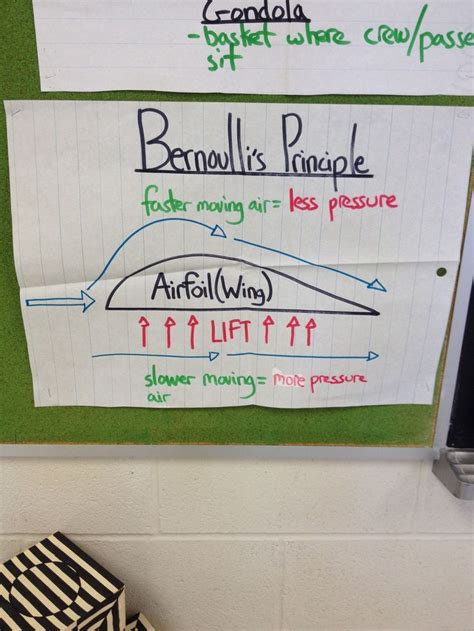 Gondola
-basket where crew/passe
sit
Bernoulli's Principle
faster moving air = less pressure
Airfoil (Wing)
LIFT
slower moving = more pressure
air